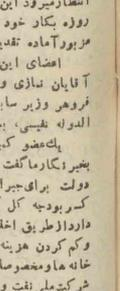 انتظار میرود این
روزه بکار خود
مزبور آماده تقدیم
اعضای این
آقایان نمازی و
فروهر وزیر ساب
الدوله نفیسی،
یک عضو کم
بخبر نگار ما گفت
دولت برای جبرا
کسر بودجه کل ک
دارد از طریق اخذ
و کم کردن هزینه
خانه ها و مخصوصا
شرکت ملی نفت و